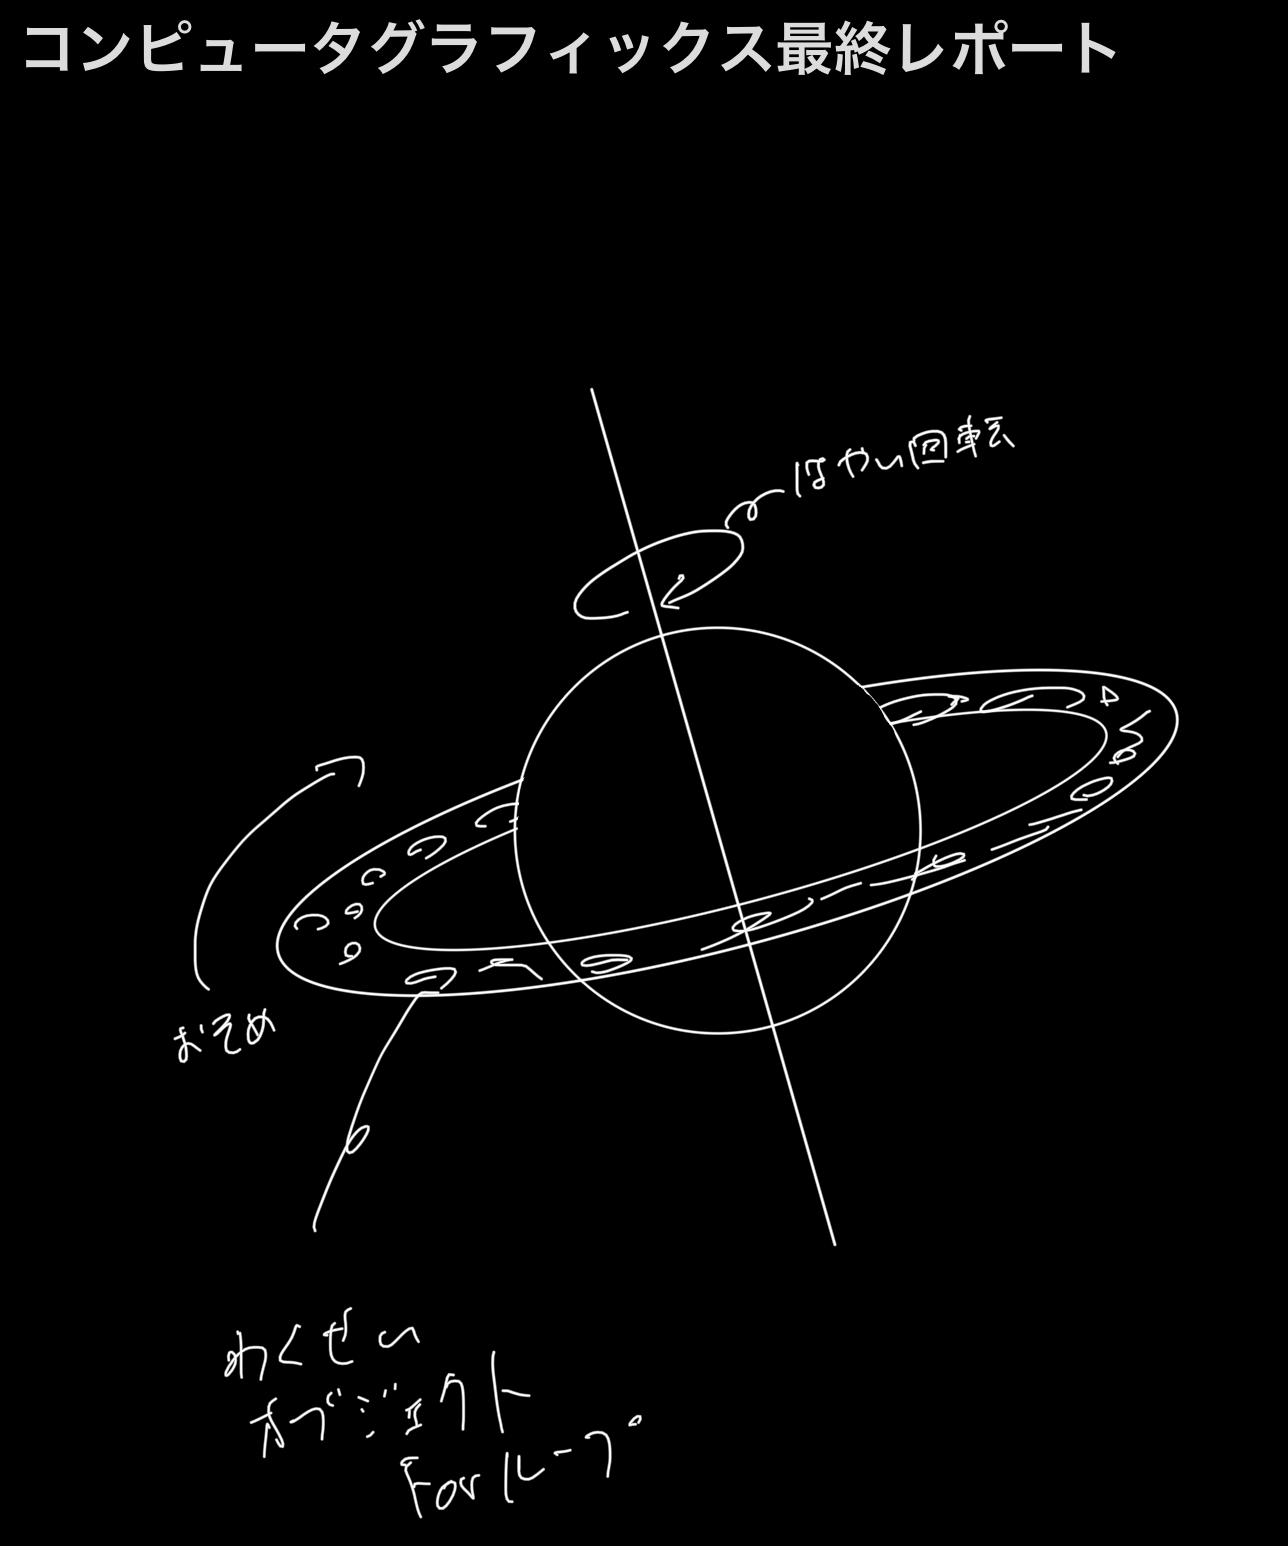 コンピュータグラフィックス最終レポート
はやい回転
おそめ
わくせい
オブジェクト
Forループ